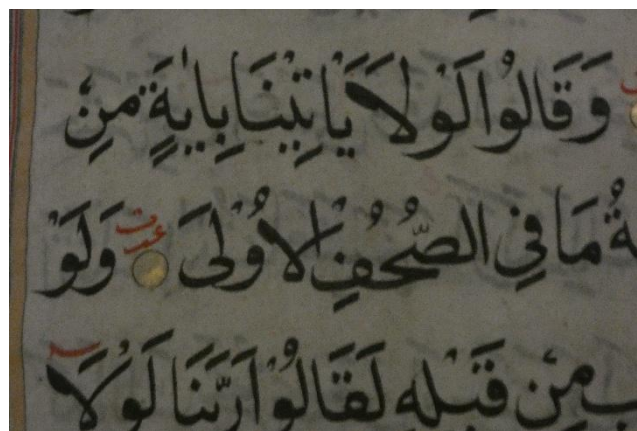 وَقَالُوا لَوْلَا يَأْتِينَا بِآيَةٍ مِنْ
مَا فِي الصُّحُفِ الْأُولَىٰ وَلَوْ
مِنْ قَبْلِهِ لَقَالُوا رَبَّنَا لَوْلَا